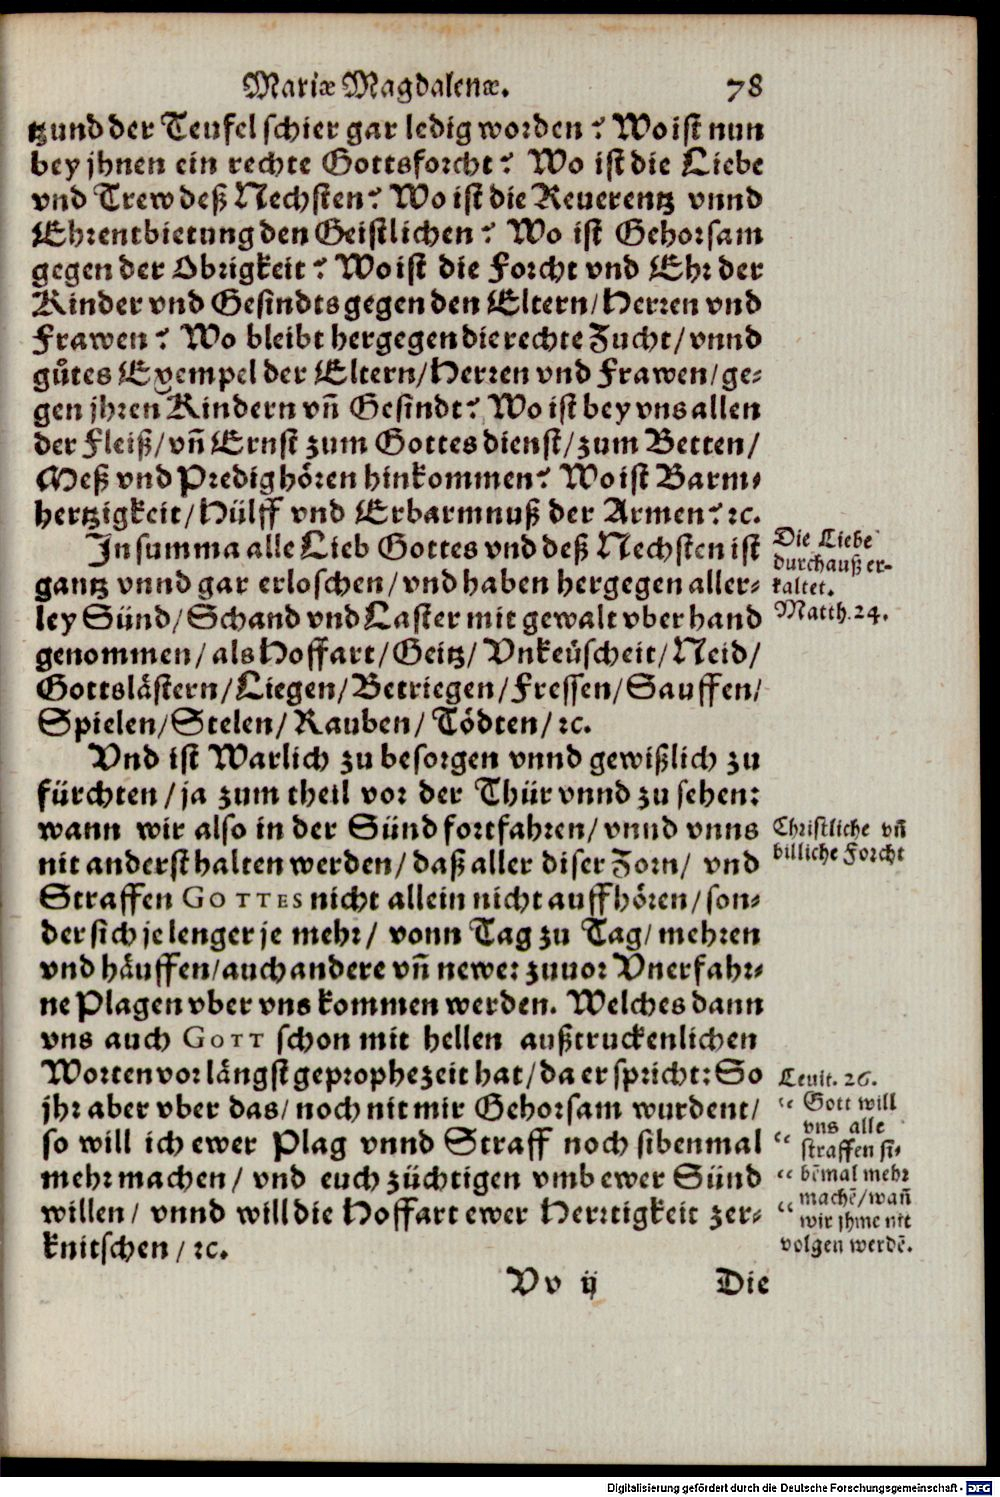 Mariæ Magdalenæ. 78
tzund der Teufel schier gar ledig worden? Wo ist nun
bey jhnen ein rechte Gottsforcht? Wo ist die Liebe
vnd Trew deß Nechsten? Wo ist die Reuerentz vnnd
Ehrentbietung den Geistlichen? Wo ist Gehorsam
gegen der Obrigkeit? Wo ist die Forcht vnd Ehr der
Kinder vnd Gesindts gegen den Eltern/ Herren vnd
Frawen? Wo bleibt hergegen die rechte Zucht/ vnnd
gůtes Exempel der Eltern/ Herren vnd Frawen/ ge-
gen jhren Kindern vñ Gesindt? Wo ist bey vns allen
der Fleiß/ vñ Ernst zum Gottesdienst/ zum Betten/
Meß vnd Predig hören hinkommen? Wo ist Barm-
hertzigkeit/ Hülff vnd Erbarmnuß der Armen? ꝛc.
In summa alle Lieb Gottes vnd deß Nechsten ist
gantz vnnd gar erloschen/ vnd haben hergegen aller-
ley Sünd/ Schand vnd Laster mit gewalt vberhand
genommen/ als Hoffart/ Geitz/ Vnkeüscheit/ Neid/
Gottslästern/ Liegen/ Betriegen/ Fressen/ Sauffen/
Spielen/ Stelen/ Rauben/ Tödten/ ꝛc.
Die Liebe
durchauß er-
kaltet.
Matth. 24.
Vnd ist Warlich zu besorgen vnnd gewißlich zu
fürchten/ ja zum theil vor der Thür vnnd zu sehen:
wann wir also in der Sünd fortfahren/ vnnd vnns
nit anderst halten werden/ daß aller diser Zorn/ vnd
Straffen GOTTES nicht allein nicht auffhören/ son-
der sich je lenger je mehr/ vonn Tag zu Tag/ mehren
vnd häuffen/ auch andere vñ newe: zuuor Vnerfahr-
ne Plagen vber vns kommen werden. Welches dann
vns auch GOTT schon mit hellen außtruckenlichen
Worten vorlängst geprophezeit hat/ da er spricht: So
jhr aber vber das/ noch nit mir Gehorsam wurdent/
so will ich ewer Plag vnnd Straff noch sibenmal
mehr machen/ vnd euch züchtigen vmb ewer Sünd
willen/ vnnd will die Hoffart ewer Herrtigkeit zer-
knitschen/ ꝛc.
Christliche vñ
billiche Forcht
Leuit. 26.
“ Gott will
vns alle
“ straffen si-
“ bẽmal mehr
machẽ/ wañ
“ wir jhme nit
volgen werdẽ.
Vv ij Die
Digitalisierung gefördert durch die Deutsche Forschungsgemeinschaft - DFG